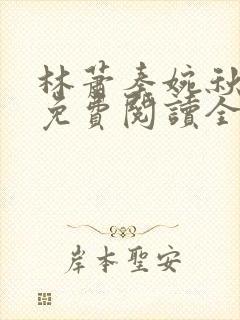 林蕭秦婉秋
免費閱讀全
岸本聖安